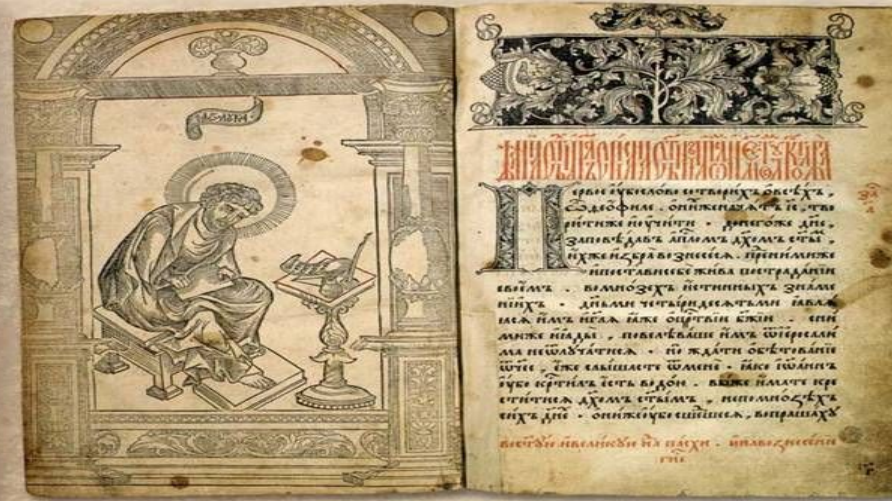 Первое оубо слово сотворихъ о всѣхъ ,
ѽ ѳеофиле . о нихже начатъ іс , тво
рити же и оучити . до негоже дне ,
заповѣдавъ апⷭломъ дхомъ стымъ ,
ихже избра вознесеся . пред нимиже
и постави себе жива по страданіи
своемъ . во мнозехъ истинныхъ знаме
ниихъ . дньми четыридесятьми явля
яся имъ и глѧ ꙗже о цртвіи бжіи . с ни
миже и ꙗды , повелѣваше имъ ѿ іерасали
ма не ѿлучатися . но ждати обѣтованіе
ѿчее , еже слышасте ѿ мене . ꙗко іѡаннъ
оубо крстилъ есть водою . вы же имате кре
ститися дхомъ стымъ , не по мнозѣхъ
сихъ дне . они же оубо сшедшеся , вопрашаху
во стую и великую пасхи . и на вознесеніе
гне